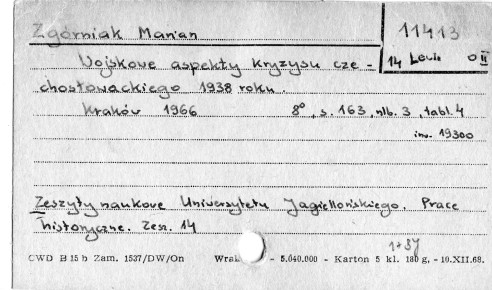 Zgórniak Marian
11413
Wojskowe aspekty kryzysu cze-
14 II
chosłowackiego 1938 roku.
Kraków 1966 8°, s. 163, nlb. 3, tabl. 4
inw. 19300
Zeszyty naukowe Uniwersytetu Jagiellońskiego. Prace
historyczne. Zesz. 14
CWD B 15 b Zam. 1537/DW/On - 5.040.000 - Karton 5 kl. 180 g, - 10.XII.68.